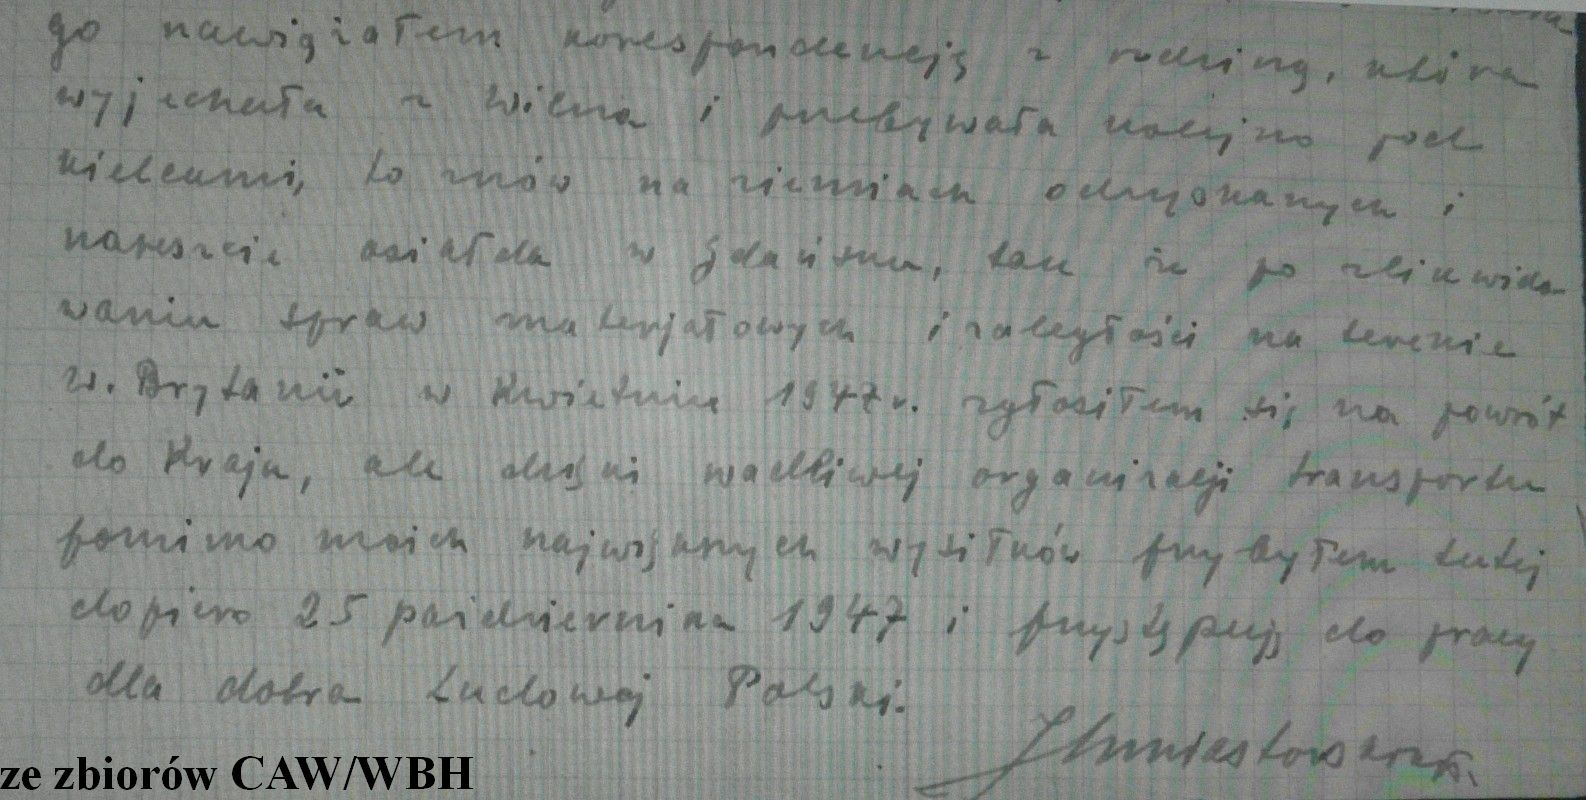 go nawiązałem korespondencję z rodziną, która
wyjechała z Wilna i przebywała kolejno pod
Kielcami, to znów na ziemiach odzyskanych i
nareszcie osiadła w Gdańsku, tak że po zlikwido-
waniu spraw materjałowych i zaległości na terenie
W. Brytanii w Kwietniu 1947 r. zgłosiłem się na powrót
do Kraju, ale dzięki wadliwej organizacji transportu
pomimo moich największych wysiłków przybyłem tutaj
dopiero 25 października 1947 i przystępuję do pracy
dla dobra Ludowej Polski.
ze zbiorów CAW/WBH